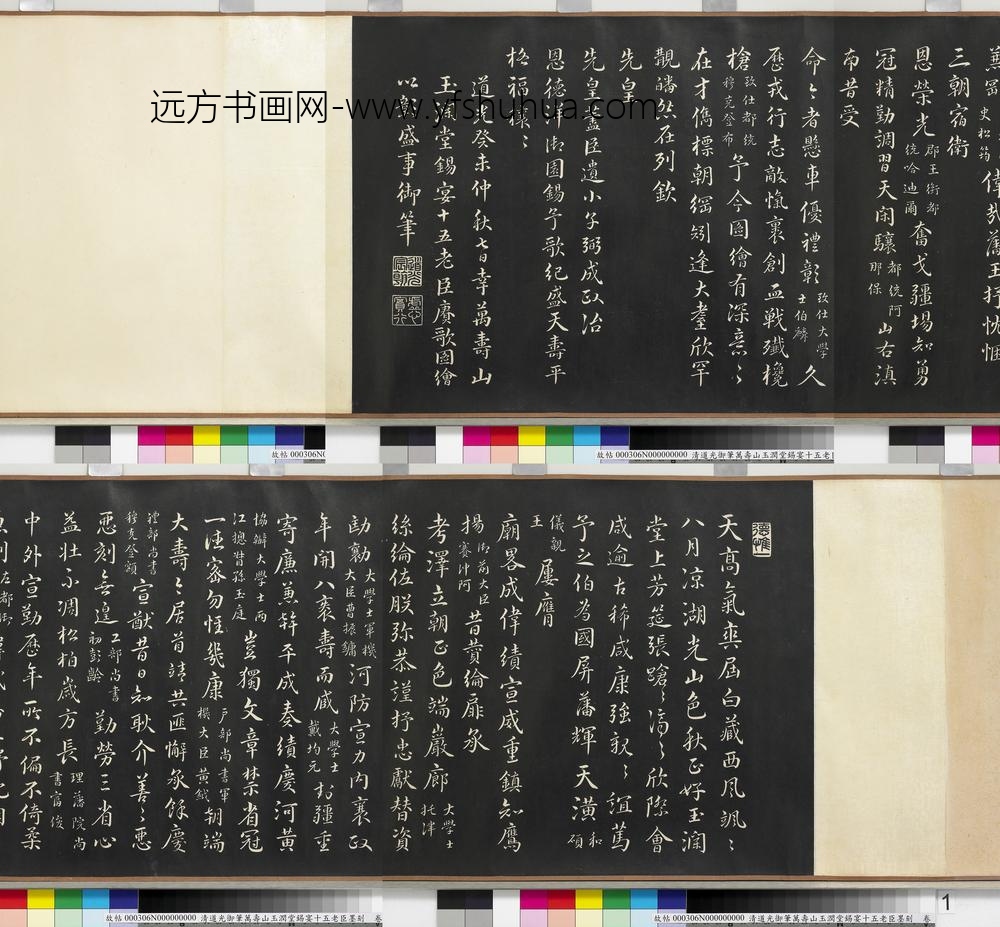 天高氣爽屆白藏西風颯〻
八月凉湖光山色秋正好玉潤
堂上芳筵張蹌〻濟〻欣際會
咸逾古稀咸康強親〻誼篤
予之伯為國屏藩輝天潢 和碩
儀親王 屢膺
廟畧成偉績宣威重鎮知鷹
揚 御前大臣賽沖阿 昔贊綸扉參
考澤立朝正色端巖廊 大學士托津
絲綸佐朕弥恭謹抒忠獻替資
勛勷 大學士軍機大臣曹振鏞 河防宣力內襄政
年開八袠壽而臧 大學士戴均元 封疆重
寄廉兼幹平成奏績慶河黃
協辦大學士兩江總督孫玉庭 豈獨文章禁省冠
一誠密勿惟幾康 戶部尚書軍機大臣黃鉞 朝端
大壽〻居首靖共匪懈參餘慶
禮部尚書穆克登額 宣猷昔日知耿介善〻惡
惡刻無遑 工部尚書初彭齡 勤勞三省心
益壯小凋松柏歲方長 理藩院尚書富俊
中外宣勤歷年所不偏不倚柔
偉哉藩王抒忱悃
三朝宿衛
恩榮光 郡王銜都統哈迪爾 奮戈疆場知勇
冠精勤調習天閑驤 都統阿那保 山右滇
南昔受
命〻者懸車優禮彰 致仕大學士伯麟 久
歷戎行志敵愾裹創血戰殲欃
槍 致仕都統穆克登布 予今圖繪有深意〻
在才儁標朝綱矧逢大耋欣罕
覯皤然在列欽
先皇
先皇藎臣遺小子弼成政治
恩德洋御園錫予歌紀盛天壽平
格福穰〻
道光癸未仲秋七日幸萬壽山
玉瀾堂錫宴十五老臣賡歌圖繪
以誌盛事御筆
远方书画网-www.yfshuhua.com
故帖 000306N000000000 清道光御筆萬壽山玉潤堂錫宴十五老
故帖 000306N000000000 清道光御筆萬壽山玉潤堂錫宴十五老臣墨刻 卷
故帖 000306N000000000 清道光御筆萬壽山玉潤堂錫宴十五老臣墨刻 卷
1